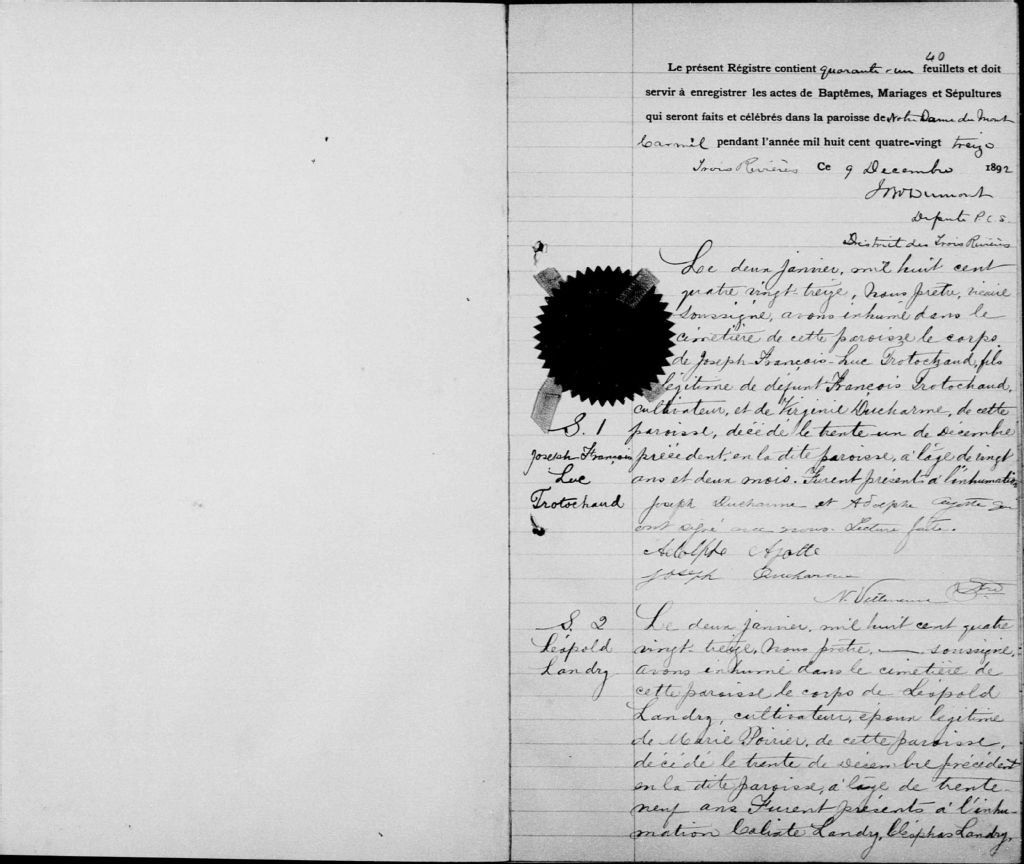 40
Le présent Régistre contient quarante-un feuillets et doit
servir à enregistrer les actes de Baptêmes, Mariages et Sépultures
qui seront faits et célébrés dans la paroisse de Notre Dame du Mont
Carmel pendant l'année mil huit cent quatre-vingt treize
Trois Rivières Ce 9 Decembre 1892
Dumont
Deputé P.C.S.
District des Trois Rivières
Le deux janvier, mil huit cent
quatre vingt-treize, Nous prêtre, vicaire
soussigné, avons inhumé dans le
cimetière de cette paroisse le corps
de Joseph-François-Luc Trotochaud, fils
légitime de défunt François Trotochaud,
cultivateur, et de Virginie Ducharme, de cette
S. 1
paroisse, décédé le trente un de Décembre
Joseph-François
précédent, en la dite paroisse, à l'âge de vingt
Luc
ans et deux mois. Furent présents à l'inhumation
Trotochaud
Joseph Ducharme et Adolphe Ayotte qui
ont signé avec nous. Lecture faite.
Adolphe Ayotte
Joseph Ducharme
N. Ptre
S. 2
Le deux janvier, mil huit cent quatre
Léopold
vingt-treize, Nous prêtre, — soussigné,
Landry
avons inhumé dans le cimetière de
cette paroisse le corps de Léopold
Landry, cultivateur, époux légitime
de Marie Poirier, de cette paroisse,
décédé le trente de Décembre précédent
en la dite paroisse, à l'âge de trente-
neuf ans Furent présents à l'inhu-
mation Calixte Landry, Cléophas Landry,